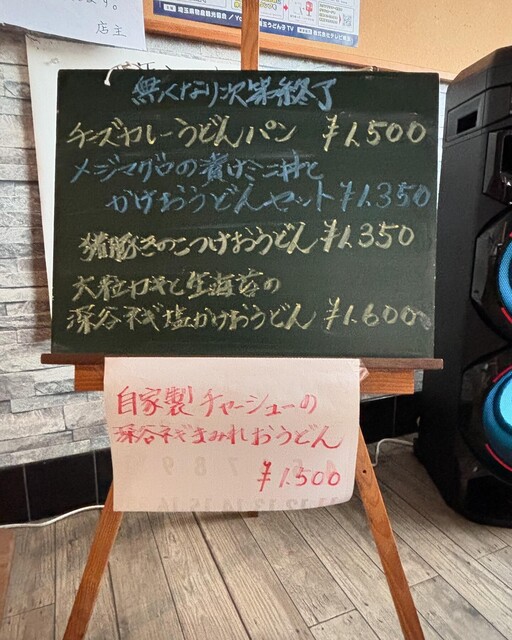 店主
埼玉県物産観光協会
株式会社テレビ埼玉
無くなり次第終了
チーズカレーうどんパン ¥1,500
メジマグロの漬けミニ丼と
かけおうどんセット ¥1,350
猪豚きのこつけおうどん ¥1,350
大粒カキと生海苔の
深谷ネギ塩かけおうどん ¥1,600
自家製チャーシューの
深谷ネギまみれおうどん
¥1,500